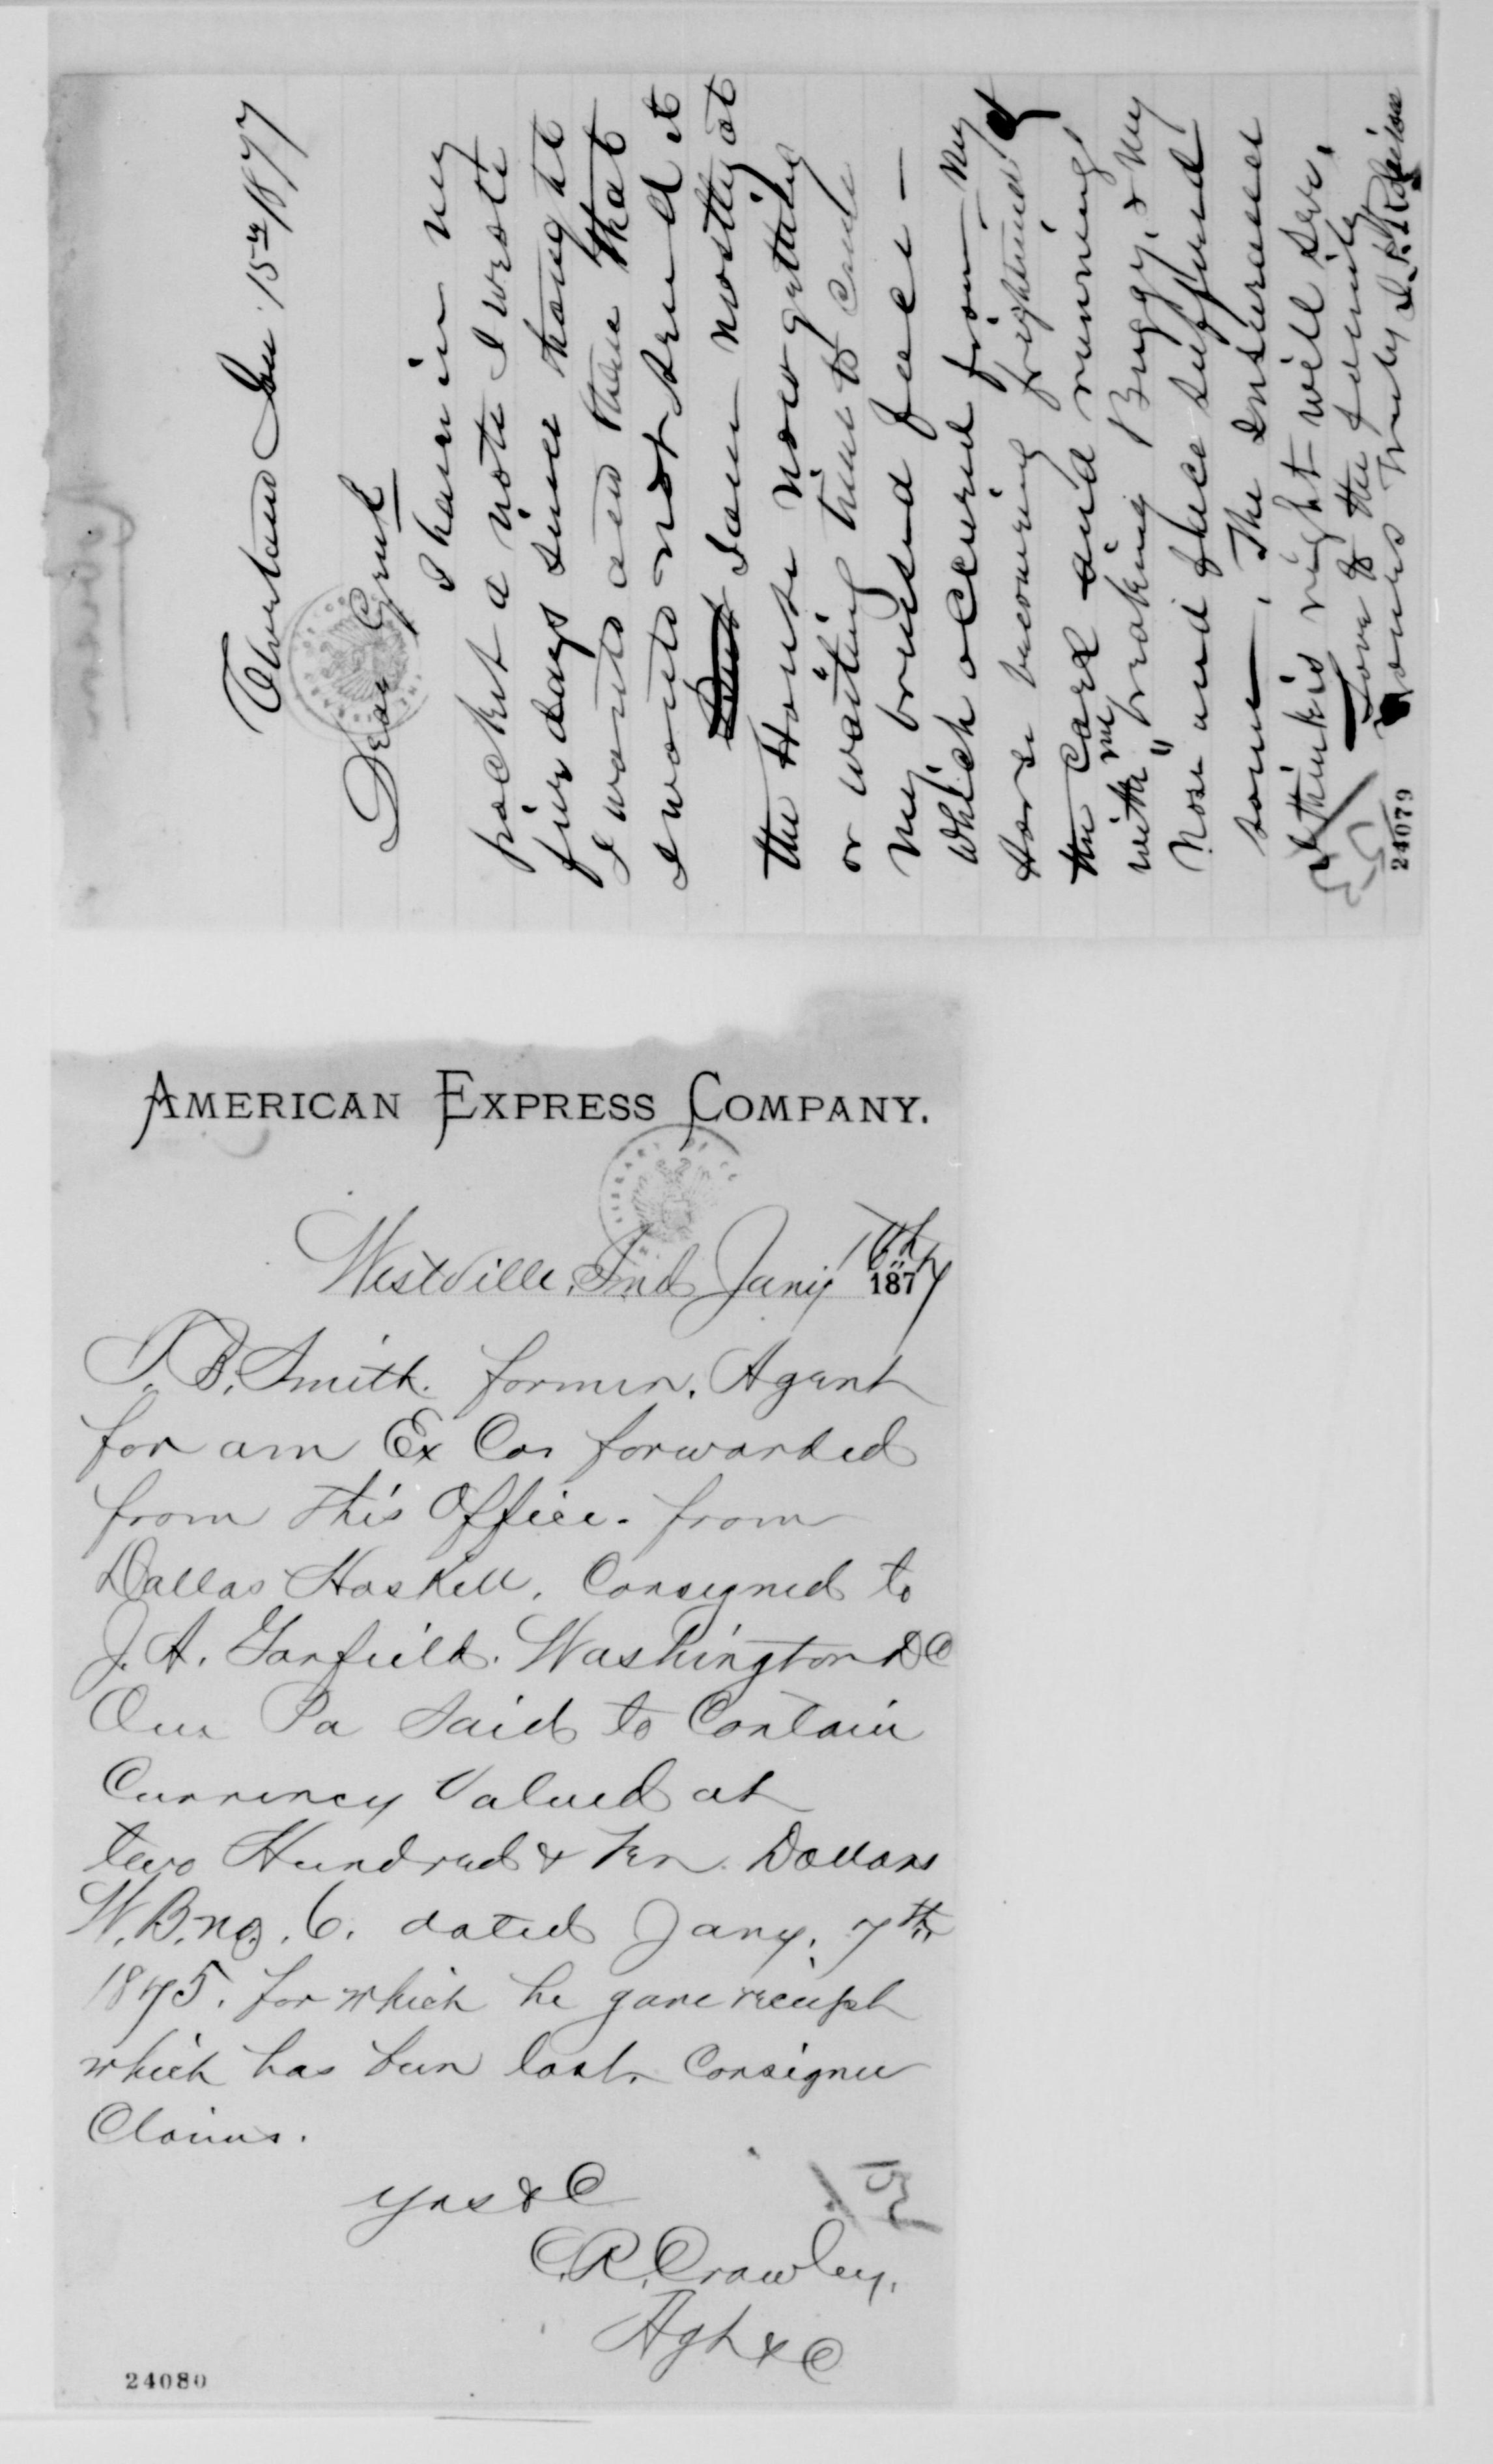 Cleveland Jan 15th 1877
Dear Genl
I have in my
pocket a note I wrote
five days since thought
I would add then that
I would not send it
I am mostly at
the House now getting
or waiting time to cure
My bruised face —
Which occurred from My
Horse becoming frightened of
the Cars and running
with me breaking Buggy, & My
Nose and face suffered
some. The Insurance
I think is right will see.
Love to the family
Yours Truly
24079
AMERICAN EXPRESS COMPANY.
Westville, Ind Jany 16th 1877
T. B. Smith. former. Agent
for am Ex Co. forwarded
from this Office. from
Dallas Haskell. Consigned to
J. A. Garfield. Washington DC
One Pa Said to Contain
Currency Valued at
two Hundred & ten Dollars
W. B. no. 6. dated Jany. 7th
1875. for which he gave reciept
which has been lost. Consignee
Claims.
Yrs &C
C. R. Crawley.
Agt &C
24080